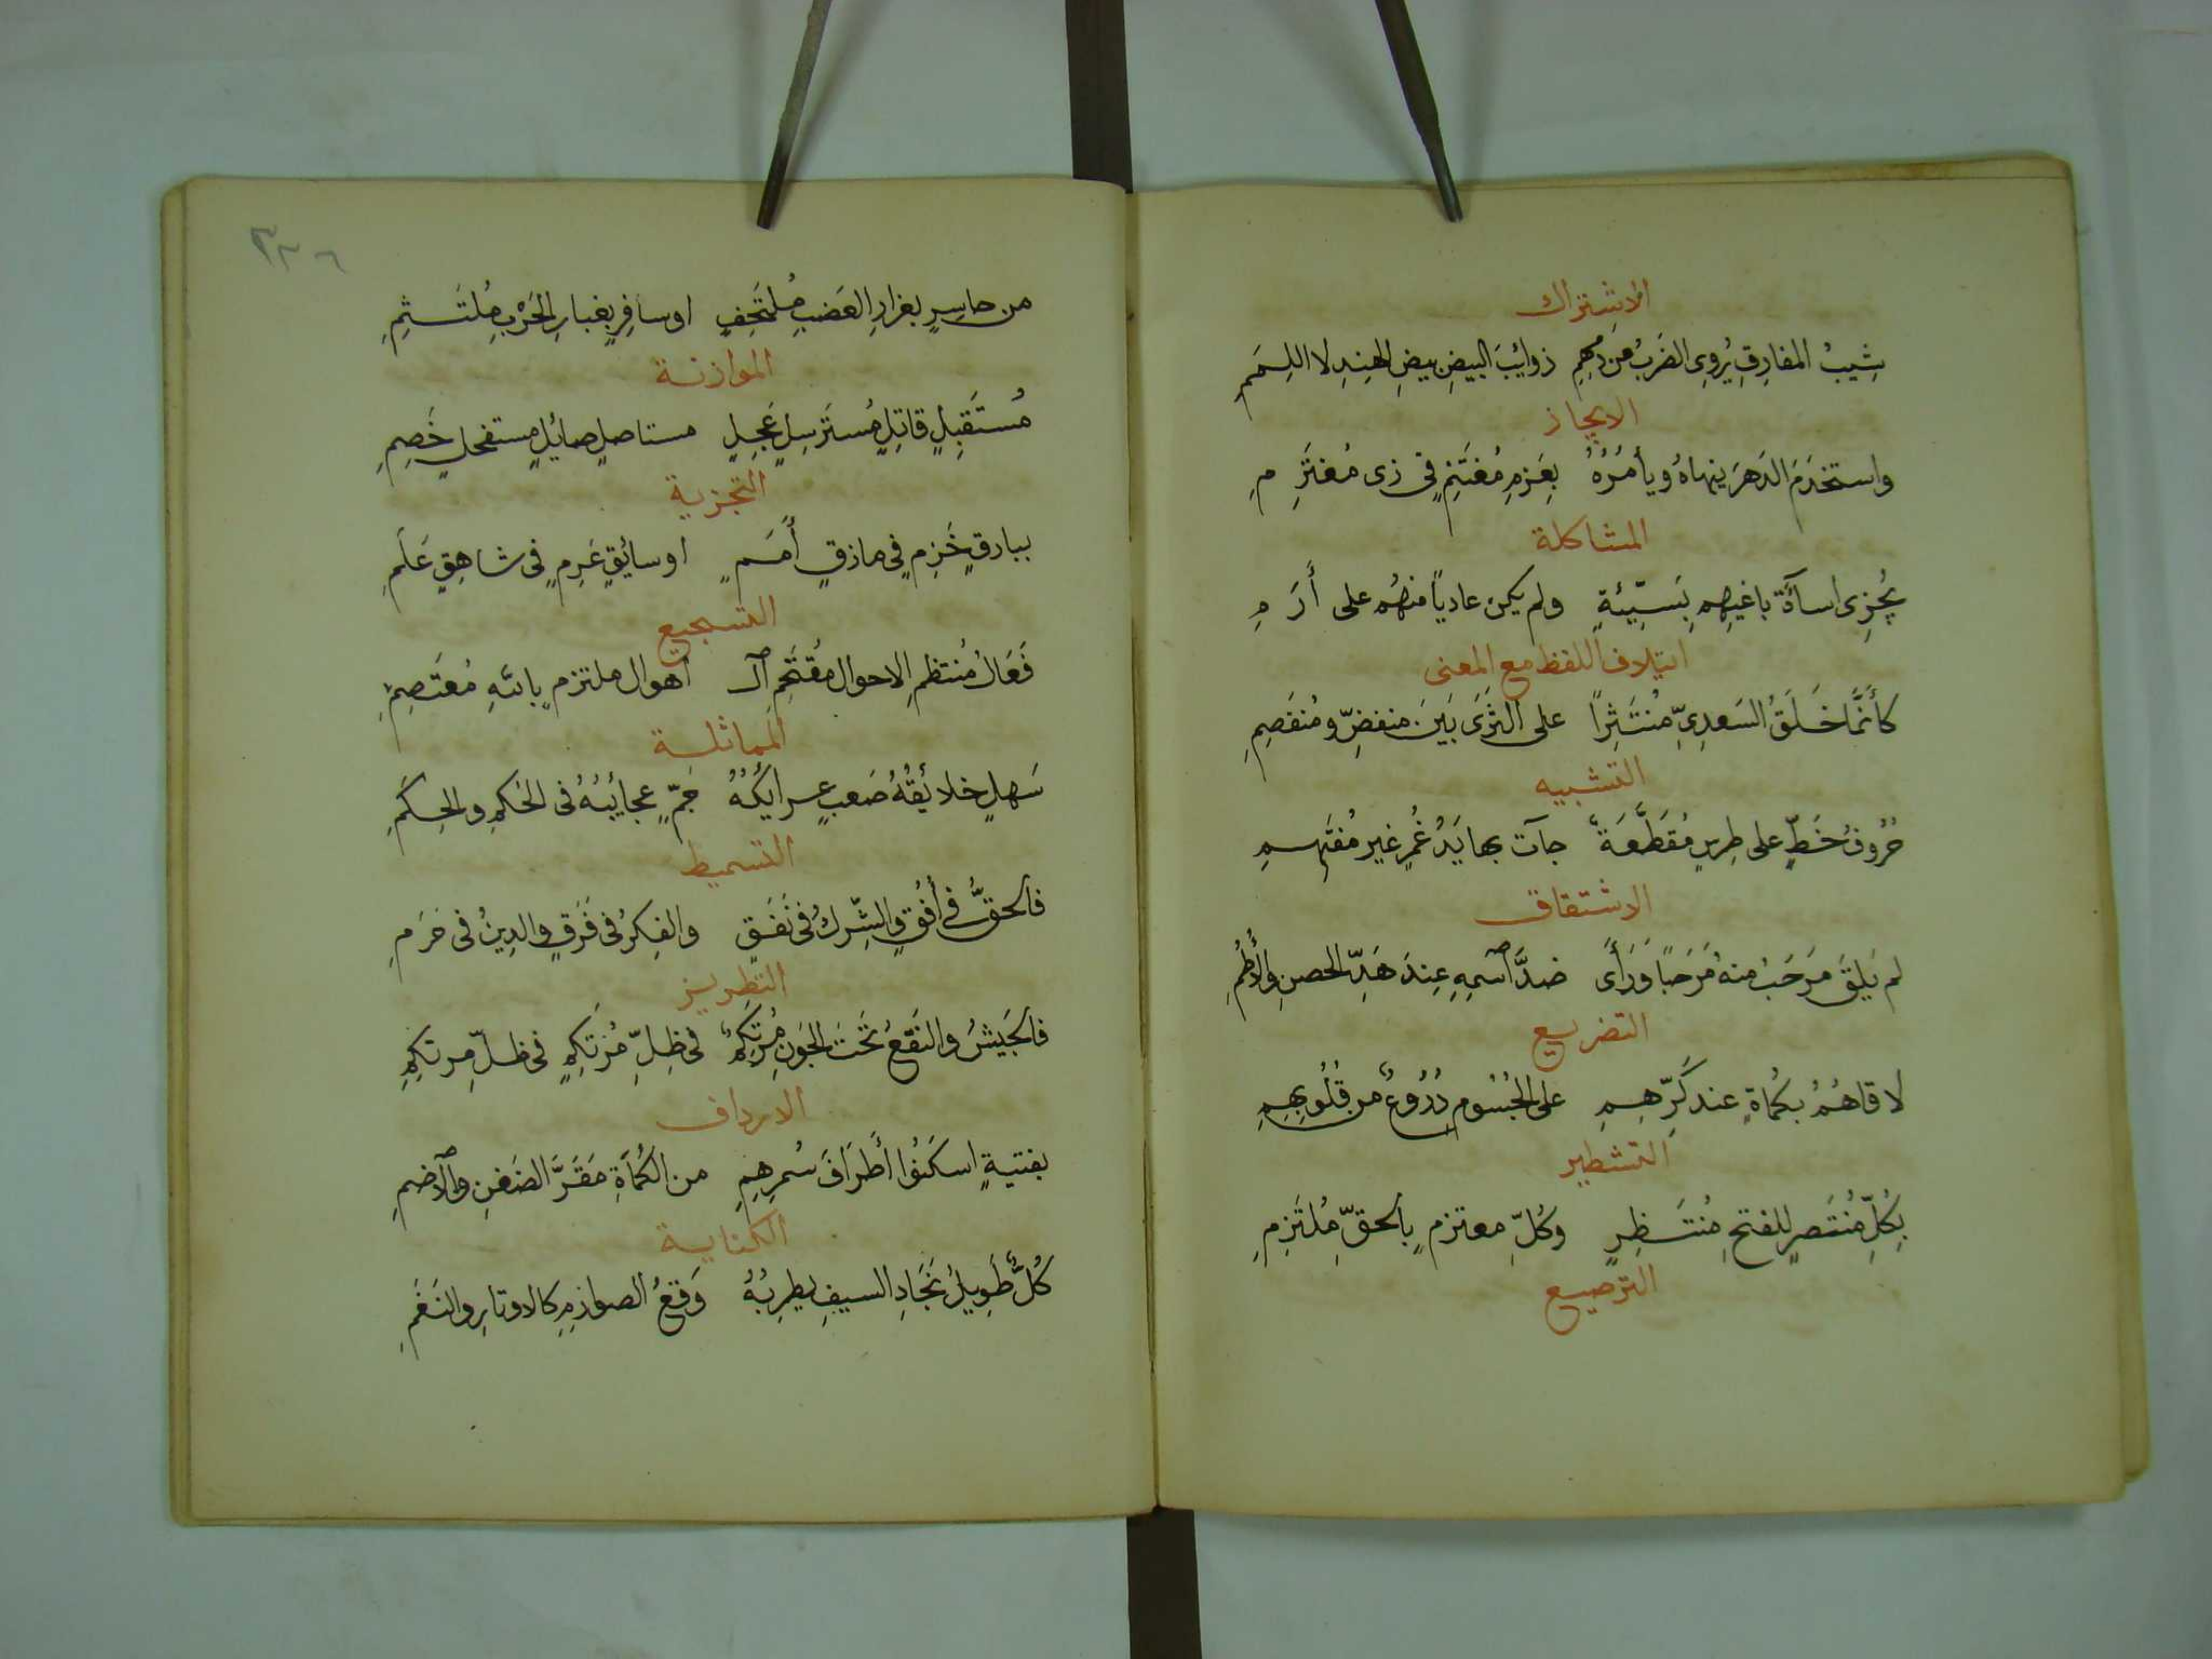 الاشتراك
شِيبُ المفارِقِ يُروِى الضَربُ من دمهِمِ ذوائِبَ البيضِ بيضِ الهندِ لا اللِمَمِ
الايجاز
واستخدَمَ الدَهرَ ينهاهُ ويأمُرُهُ بِعَزمِ مُغتَنِمٍ فى زى مُغتَرِمِ
المشاكلة
يُجزِى اسآءَةَ باغيهِمِ بِسَيِّئةٍ ولم يكن عادياً منهُم على أَرَمِ
ايتلاف اللفظ مع المعنى
كأَنَّما حَلَقُ السَعدِىِّ مُنتَثِراً على الثرَى بَينَ منفضِّ ومُنفَصِمِ
التشبيه
حُروفُ خَطٍّ على طِرسٍ مُقَطَّعَةٌ جآت بها يَدُ غُمرٍ غير مُفتَهِمِ
الاشتقاق
لم يَلقَ مَرحَبُ منهُ مَرحَباً وَرَأَى ضدَّ ٱسمِهِ عِندَ هَدِّ الحصنِ والأُطُمِ
التفريع
لاقاهُمُ بكُماةٍ عند كَرِّهِمِ على الجُسُومِ دُرُوعٌ من قُلُوبِهِمِ
التشطير
بِكُلِّ مُنتَصِرٍ للفتحِ مُنتَظِرٍ وكُلِّ معتزمٍ بالحقِّ مُلتَزِمِ
الترصيع
٣٣٦
من حاسِرٍ بغرارِ العَضبِ مُلتَحِفٍ اوسافِرٍ بغبارِ الحَرْبِ مُلتَثِمِ
الموازنة
مُستَقبِلٍ قاتِلٍ مُستَرسِلٍ عَجِلٍ مستاصلٍ صائلٍ مستفحلٍ خَصِمِ
التجزية
ببارقٍ خَذِمٍ فى مازقٍ أَمَمٍ اوسائِقٍ عَرِمٍ فى شاهِقٍ عَلَمِ
التسجيع
فَعّال مُنتظمِ الاحوال مُقتَحِمِ ٱل اهوال ملتزمٍ بالله مُعتَصِمِ
المماثلة
سَهلٍ خلائِقُهُ صَعبٍ عرايكُهُ جَمٍّ عجائِبُهُ فى الحُكمِ والحِكَمِ
التسميط
فالحقُّ فى أُفُقٍ والشِّركُ فى نَفَقٍ والفِكرُ فى فَرَقٍ والدِينُ فى حَرَمِ
التطريز
فالجَيشُ والنَقعُ تَحتَ الجَونِ مُرتَكِمٌ فى ظِلِّ مُرتَكِمٍ فى ظلِّ مرتكِمِ
الارداف
بفتيةٍ اسكَنُوا أَطرَافَ سُمرِهِمِ من الكُماةِ مَقَرَّ الضَغنِ والاضمِ
الكناية
كُلُّ طَوِيلِ نَجَادِ السيفِ يطرِبُهُ وَقعُ الصوارِمِ كالاوتارِ والنَغَمِ